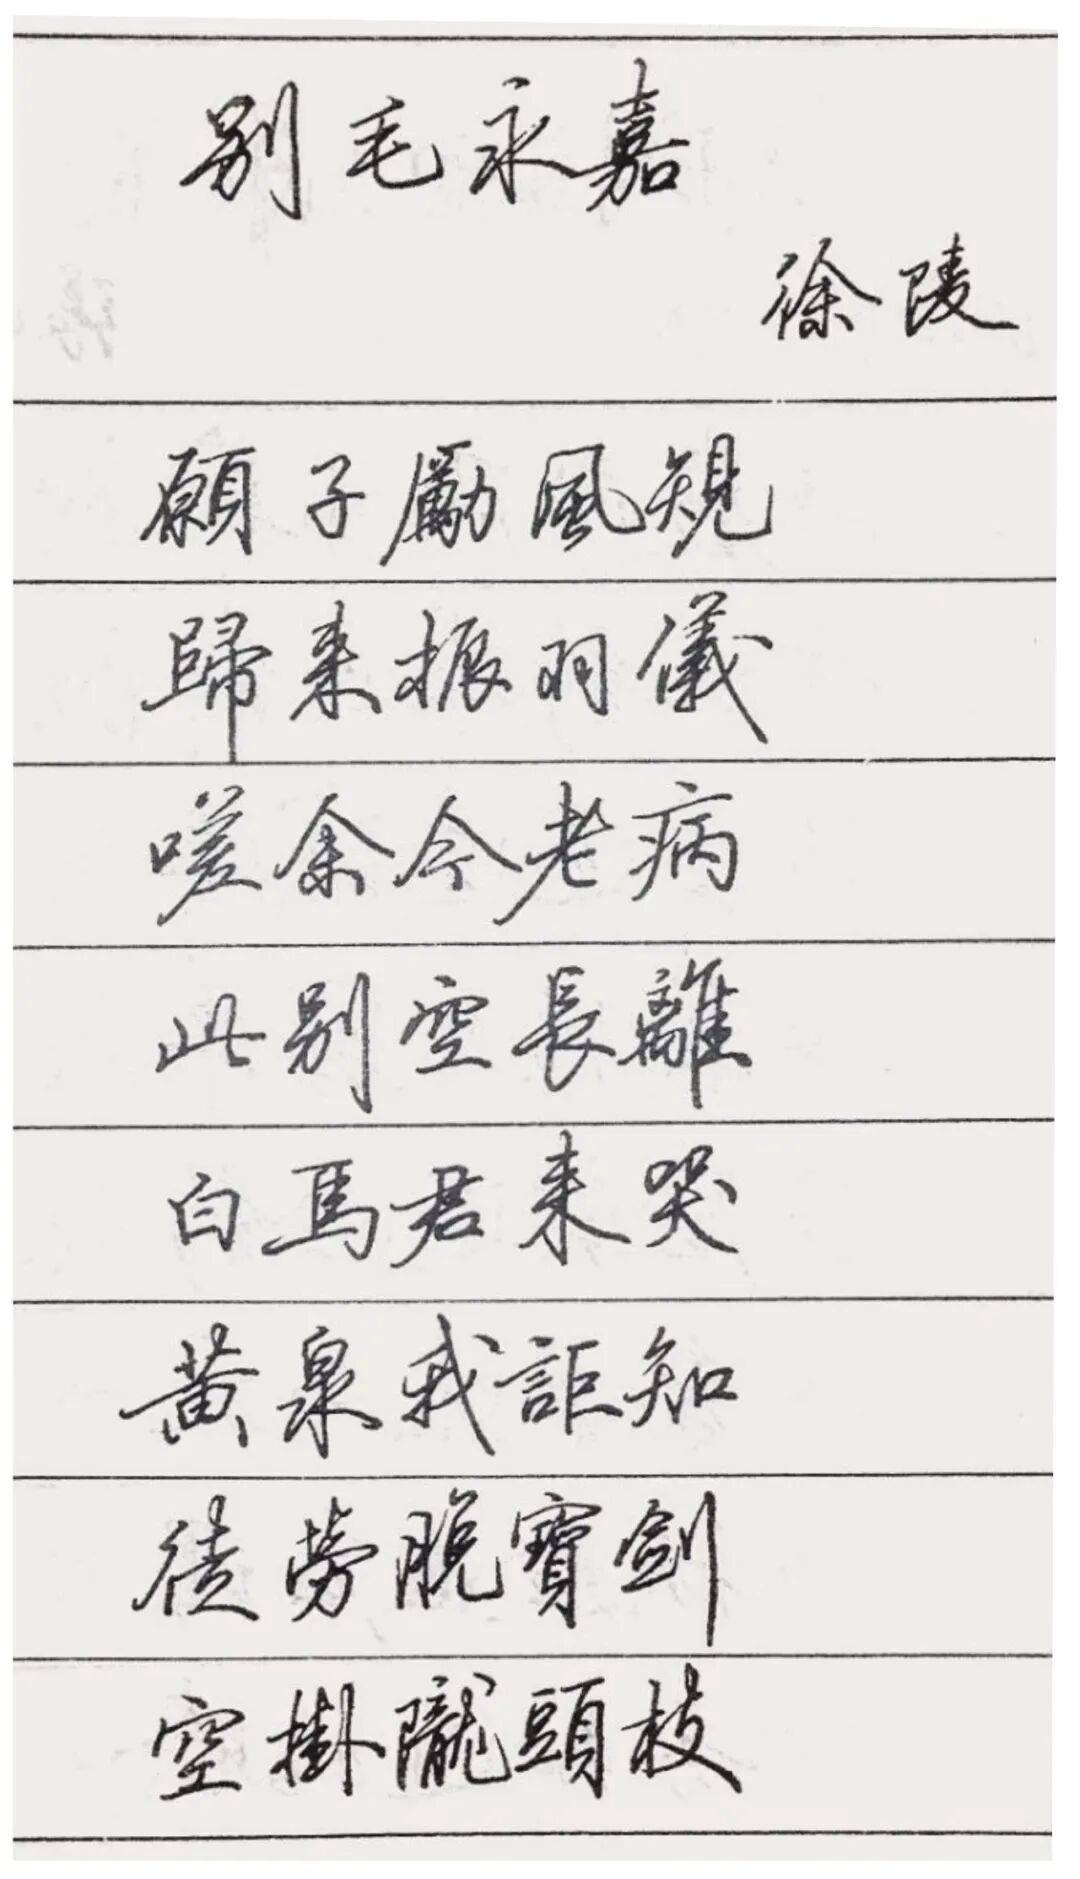 别毛永嘉
徐陵
願子勵風規
歸来振羽儀
嗟余今老病
此别空長離
白馬君来哭
黄泉我詎知
徒勞脱寶劍
空掛隴頭枝